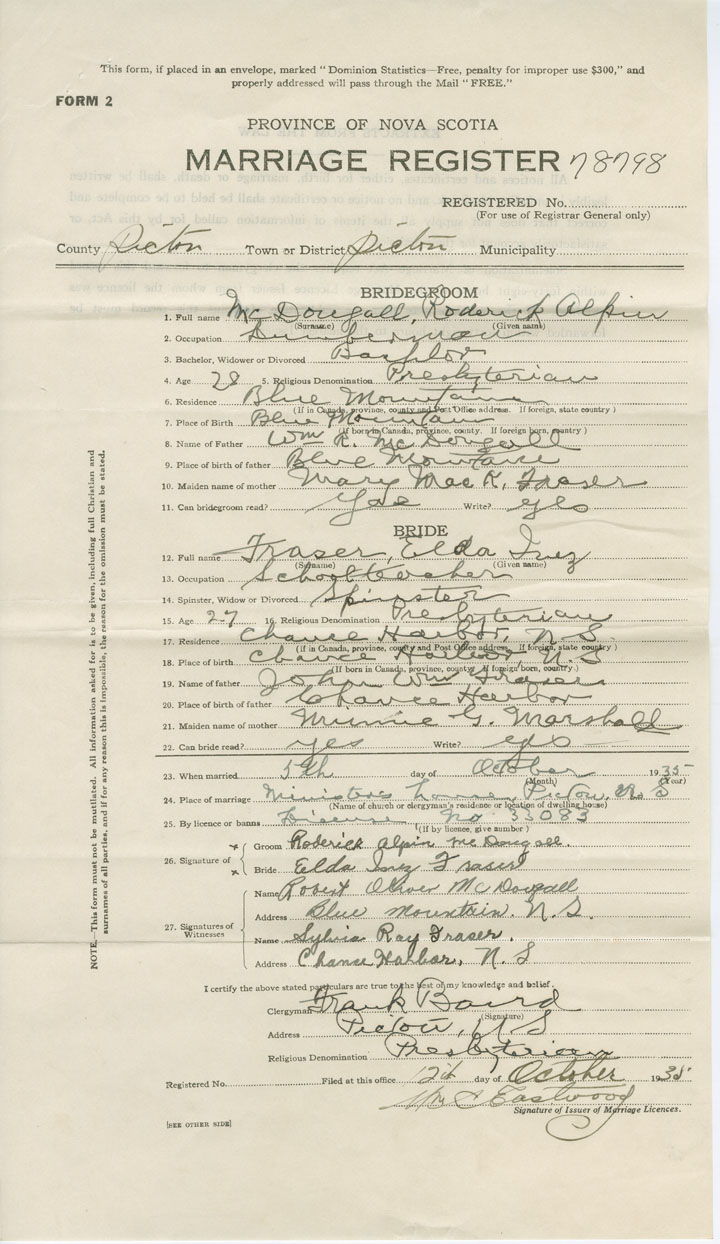 This form, if placed in an envelope, marked "Dominion Statistics—Free, penalty for improper use $300," and
properly addressed will pass through the Mail "FREE."
FORM 2
PROVINCE OF NOVA SCOTIA
MARRIAGE REGISTER 78798
REGISTERED No.
(For use of Registrar General only)
County Pictou Town or District Pictou Municipality
BRIDEGROOM
1. Full name McDougall, Roderick Alpin
(Surname) (Given name)
2. Occupation Lumberman
3. Bachelor, Widower or Divorced Bachlor
4. Age 28 5. Religious Denomination Presbyterian
6. Residence Blue Mountain
(If in Canada, province, county and Post Office address. If foreign, state country)
7. Place of Birth Blue Mountain
(If born in Canada, province, county. If foreign born, country)
8. Name of Father Wm R. McDougall
9. Place of birth of father Blue Mountain
10. Maiden name of mother Mary MacK. Fraser
11. Can bridegroom read? Yes Write? yes
BRIDE
12. Full name Fraser, Elda Inez
(Surname) (Given name)
13. Occupation Schoolteacher
14. Spinster, Widow or Divorced Spinster
15. Age 27 16. Religious Denomination Presbyterian
17. Residence Chance Harbor, N.S.
(If in Canada, province, county and Post Office address. If foreign, state country)
18. Place of birth Chance Harbor N.S
(If born in Canada, province, county. If foreign born, country)
19. Name of father John Wm Fraser
20. Place of birth of father Chance Harbor
21. Maiden name of mother Minnie G. Marshall
22. Can bride read? yes Write? yes
23. When married 5th day of October 1935
(Month) (Year)
24. Place of marriage Minister's home, Pictou, N.S
(Name of church or clergyman's residence or location of dwelling house)
25. By licence or banns License No. 33083
(If by licence, give number)
26. Signature of
Groom Roderick Alpin McDougall.
Bride Elda Inez Fraser
27. Signatures of Witnesses
Name Robert Oliver McDougall
Address Blue Mountain. N.S.
Name Sylvia Ray Fraser.
Address Chance Harbor, N.S
I certify the above stated particulars are true to the best of my knowledge and belief.
Clergyman Frank Baird
(Signature)
Address Pictou, N S
Religious Denomination Presbyterian
Registered No. Filed at this office 12th day of October 1935
Eastwood
Signature of Issuer of Marriage Licences.
[SEE OTHER SIDE]
NOTE.—This form must not be mutilated. All information asked for is to be given, including full Christian and
surnames of all parties, and if for any reason this is impossible, the reason for the omission must be stated.